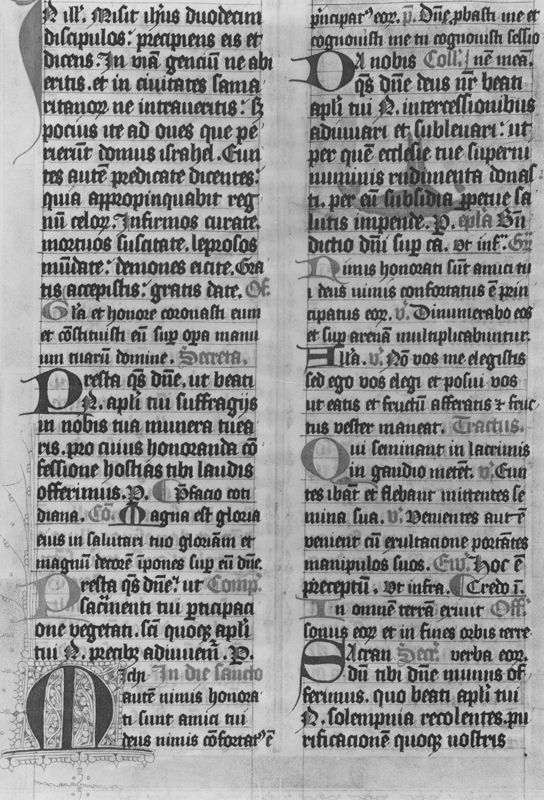 N ill'. Misit ih'us duodecim
discipulos: precipiens eis et
dicens. In viā genciū ne abi
eritis. et in civitates sama
ritanoꝝ ne intraveritis: sꝫ
pocius ite ad oves que pe
rierūt domus israhel. Eun
tes autē predicate dicentes:
quia appropinquabit reg
nū celoꝝ. Infirmos curate.
mortuos suscitate. leprosos
mūdate: demones eicite. Gra
tis accepistis: gratis date. Of.
Gl'ia et honore coronasti eum
et cōstituisti eū sup opa manu
um tuarū domine. Secreta.
Presta qs dn̄e. ut beati
N. apl'i tui suffragijs
in nobis tua munera tuea
ris. pro cuius honoranda cō
fessione hostias tibi laudis
offerimus. P. Pfacio coti
diana. Cō. Magna est gloria
eius in salutari tuo gloriam et
magnū decorē īpones sup eū dn̄e.
Presta qs dn̄e: ut Comp.
sac'menti tui pticipaci
one vegetati. sc̄i quoqꝫ apl'i
tui N. precibꝫ adiuvem'. P.
Michi In die sancto
autē nimis honora
ti sunt amici tui
deus nimis cōfortat' ē
pncipat' eoꝝ. p. Dn̄e pbasti me et
cognovisti me tu cognovisti sessio
Da nobis Coll' nē meā.
qs dn̄e deus nr̄ beati
apl'i tui N. intercessionibus
adiuvari et sublevari: ut
per quē ecclesie tue superni
muminis rudimenta donas
ti. per eū subsidia ppetue sa
lutis impende. P. epl'a Bn̄
dictio dn̄i sup ca. ut inf'. Gr'
Nimis honorati sūt amici tu
i deus nimis confortatus ē prin
cipatus eoꝝ. v. Dinumerabo eos
et sup arenā multiplicabuntur.
All'a. v. Nō vos me elegistis
sed ego vos elegi et posui vos
ut eatis et fructū afferatis ⁊ fruc
tus vester maneat. Tractus.
Qui seminant in lacrimis
in gaudio metēt. v. Eun
tes ibāt et flebant mittentes se
mina sua. v. Venientes aut ē
venient cū exultacione portātes
manipulos suos. Ew. Hoc ē
preceptū. ut infra. Credo ī.
In omnē terrā exiuit Off'
sonus eoꝝ et in fines orbis terre
Sacran Secr'. verba eoꝝ.
dū tibi dn̄e munus of
ferimus. quo beati apl'i tui
N. solempnia recolentes. pu
rificacionē quoqꝫ nostris